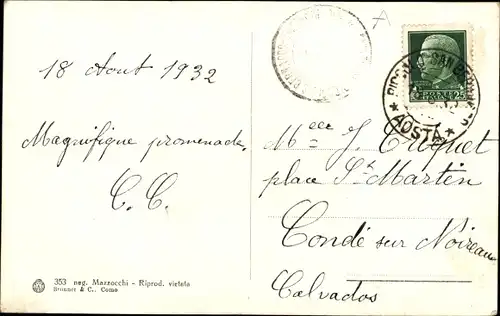 18 Aout 1932
Magnifique promenade.
C. C.
353 neg. Mazzocchi - Riprod. vietata
Brunner & C., Como
A
AOSTA
Mlle J. Criquet
place St Martin
Condé sur Noireau
Calvados